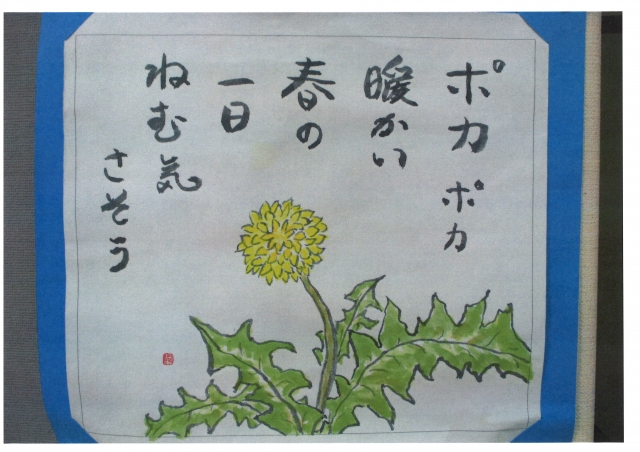 ポカポカ
暖かい
春の
一日
ねむ気
さそう